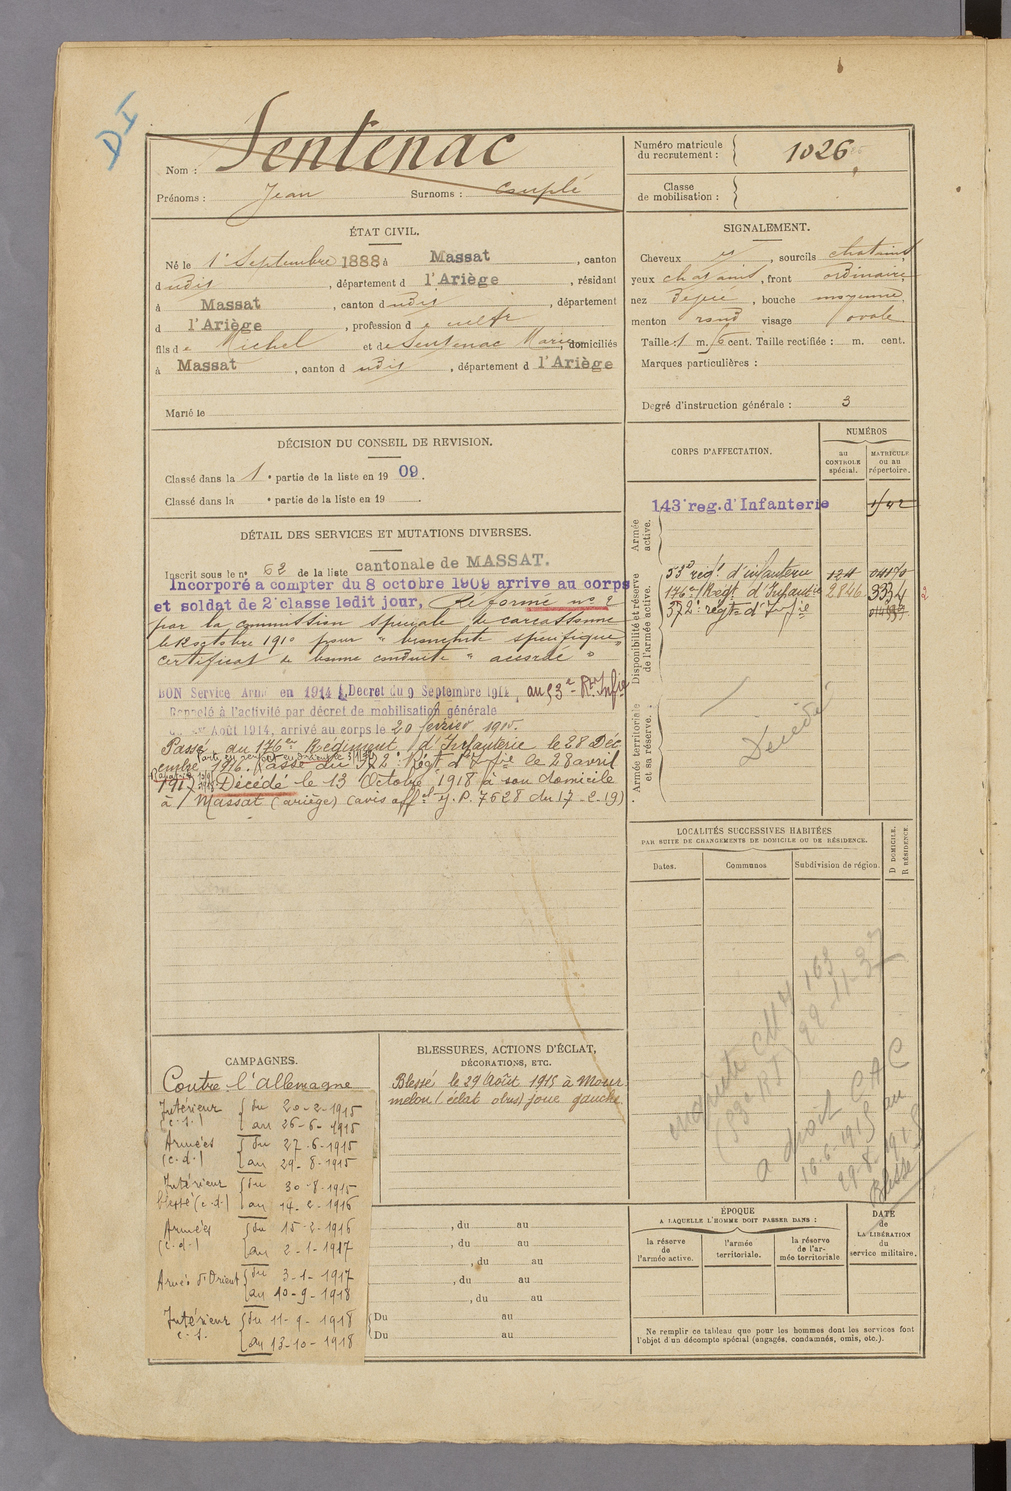 DI
Nom : Sentenac
Prénoms : Jean Surnoms : Couplé
Numéro matricule
du recrutement : 1026
Classe
de mobilisation :
ÉTAT CIVIL.
Né le 1er Septembre 1888 à Massat, canton
dudit, département d l'Ariège, résidant
à Massat, canton dudit, département
d l'Ariège, profession de cultr
fils de Michel et de Sentenac Marie, domiciliés
à Massat, canton dudit, département d l'Ariège
Marié le
SIGNALEMENT.
Cheveux et, sourcils chatains
yeux chatains, front ordinaire
nez, bouche moyenne
menton rond visage ovale
Taille : 1 m. cent. Taille rectifiée : m. cent.
Marques particulières :
Degré d'instruction générale : 3
DÉCISION DU CONSEIL DE REVISION.
Classé dans la 1e partie de la liste en 1909.
Classé dans la e partie de la liste en 19
CORPS D'AFFECTATION.
NUMÉROS
au
CONTROLE
spécial.
MATRICULE
ou au
répertoire.
Armée
active.
143e reg. d'Infanterie
Disponibilité et réserve
de l'armée active.
53e régt d'infanterie 04170
176e Régt d'Infanterie 2846 3334 2
372e régt d'Infie
Armée territoriale
et sa réserve.
Décédé
DÉTAIL DES SERVICES ET MUTATIONS DIVERSES.
Inscrit sous le no 62 de la liste cantonale de MASSAT.
Incorporé a compter du 8 octobre 1909 arrive au corps
et soldat de 2e classe ledit jour, Réformé no 2
par la commission spéciale de Carcassonne
le octobre 1910 pour " bronchite spécifique "
certificat de bonne conduite " accordé "
BON Service Armé en 1914 Decret du 9 Septembre 1914, au 53e Rt Infie
Rappelé à l'activité par décret de mobilisation générale
du 1er Août 1914, arrivé au corps le 20 février 1915.
Passé au 176e Régiment d'Infanterie le 28 Déc
embre 1916. Passé au 372e Régt d'Infie le 28 avril
1917 Décédé le 13 Octobre 1918 à son domicile
à Massat (ariège) (avis offel G. P. 7628 du 17-2-19)
LOCALITÉS SUCCESSIVES HABITÉES
PAR SUITE DE CHANGEMENTS DE DOMICILE OU DE RÉSIDENCE.
Dates.
Communes
Subdivision de région.
D DOMICILE.
R RÉSIDENCE.
CAMPAGNES.
Contre l'Allemagne
Intérieur (c.s.) du 20-2-1915
au 26-6-1915
Armées (c.d.) du 27-6-1915
au 29-8-1915
Intérieur blessé (c.d.) du 30-8-1915
au 14-2-1916
Armées (c.d.) du 15-2-1916
au 2-1-1917
Armée d'Orient du 3-1-1917
au 10-9-1918
Intérieur c.s. du 11-9-1918
au 13-10-1918
BLESSURES, ACTIONS D'ÉCLAT,
DÉCORATIONS, ETC.
Blessé le 29 Août 1915 à Mour
melon (éclat obus) joue gauche
, du au
, du au
, du au
, du au
, du au
Du au
Du au
a droit C A C
16-6-1915 au
29-8-1915
Blessé
ÉPOQUE
A LAQUELLE L'HOMME DOIT PASSER DANS :
la réserve
de
l'armée active.
l'armée
territoriale.
la réserve
de l'ar-
mée territoriale
DATE
de
LA LIBÉRATION
du
service militaire.
Ne remplir ce tableau que pour les hommes dont les services font
l'objet d'un décompte spécial (engagés, condamnés, omis, etc.).